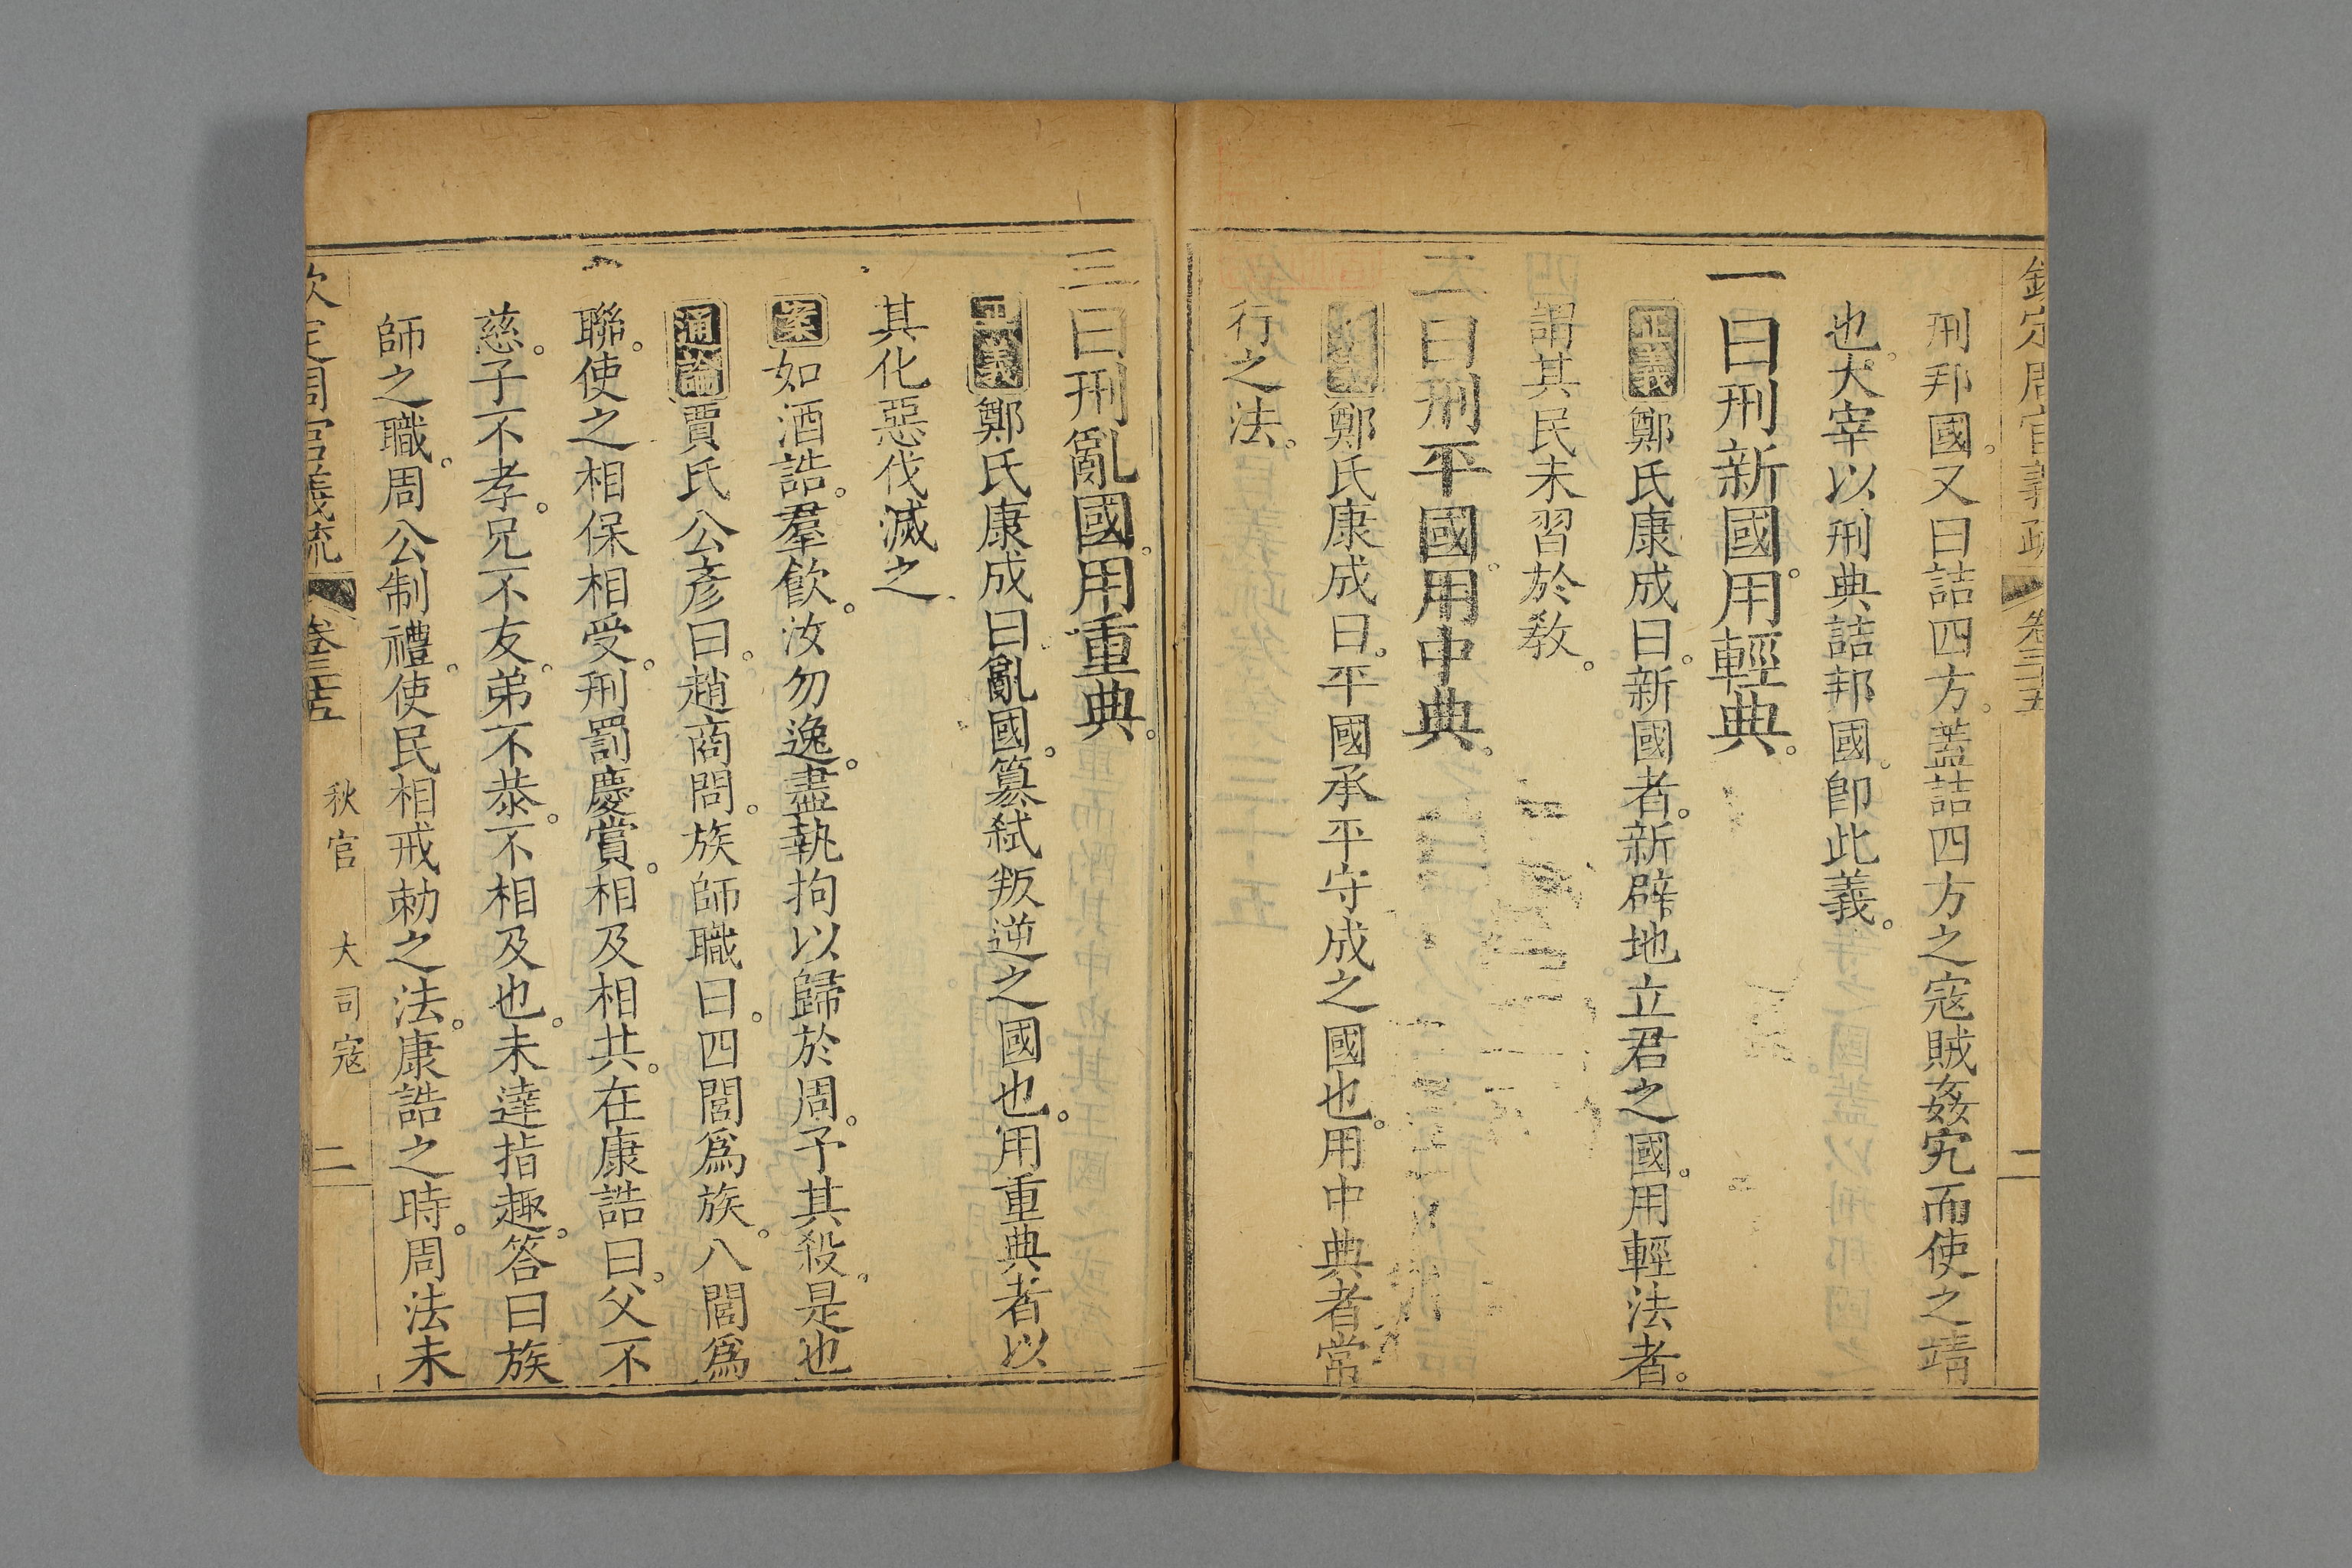 欽定周官義疏 卷三十五 二
刑邦國。又曰詰四方。蓋詰四方之寇賊姦宄而使之靖
也。大宰以刑典詰邦國。卽此義。
一曰刑新國。用輕典。
正義鄭氏康成曰。新國者。新辟地立君之國。用輕法者。
謂其民未習於敎。
二曰刑平國。用中典。
正義鄭氏康成曰。平國承平守成之國也。用中典者常
行之法。
三曰刑亂國。用重典。
正義鄭氏康成曰。亂國。簒弑叛逆之國也。用重典者以
其化惡伐滅之
案如酒誥。羣飮。汝勿逸。盡執拘以歸於周。予其殺。是也
通論賈氏公彥曰。趙商問。族師職曰。四閭爲族。八閭爲
聯。使之相保相受。刑罰慶賞。相及相共。在康誥曰。父不
慈。子不孝。兄不友。弟不恭。不相及也。未達指趣。答曰族
師之職。周公制禮。使民相戒勅之法。康誥之時。周法未
欽定周官義疏 卷三十五 秋官 大司寇 二